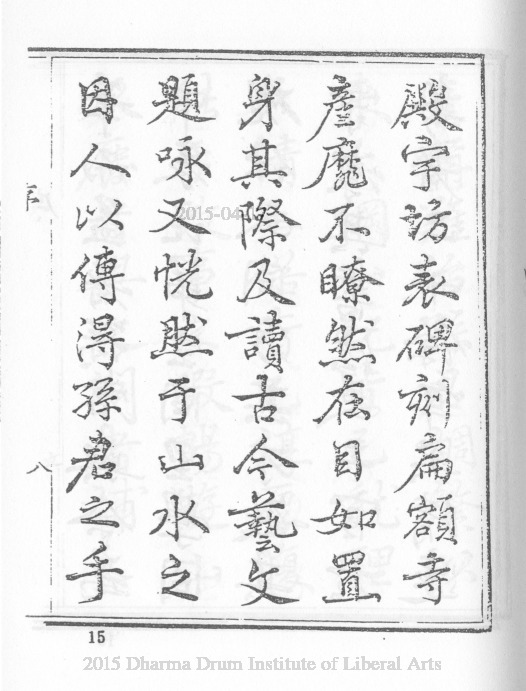 殿宇坊表碑刻扁額寺
產靡不瞭然在目如置
身其際及讀古今藝文
題咏又恍然于山水之
因人以傳得孫君之手
序
八
15
2015-04
2015 Dharma Drum Institute of Liberal Arts